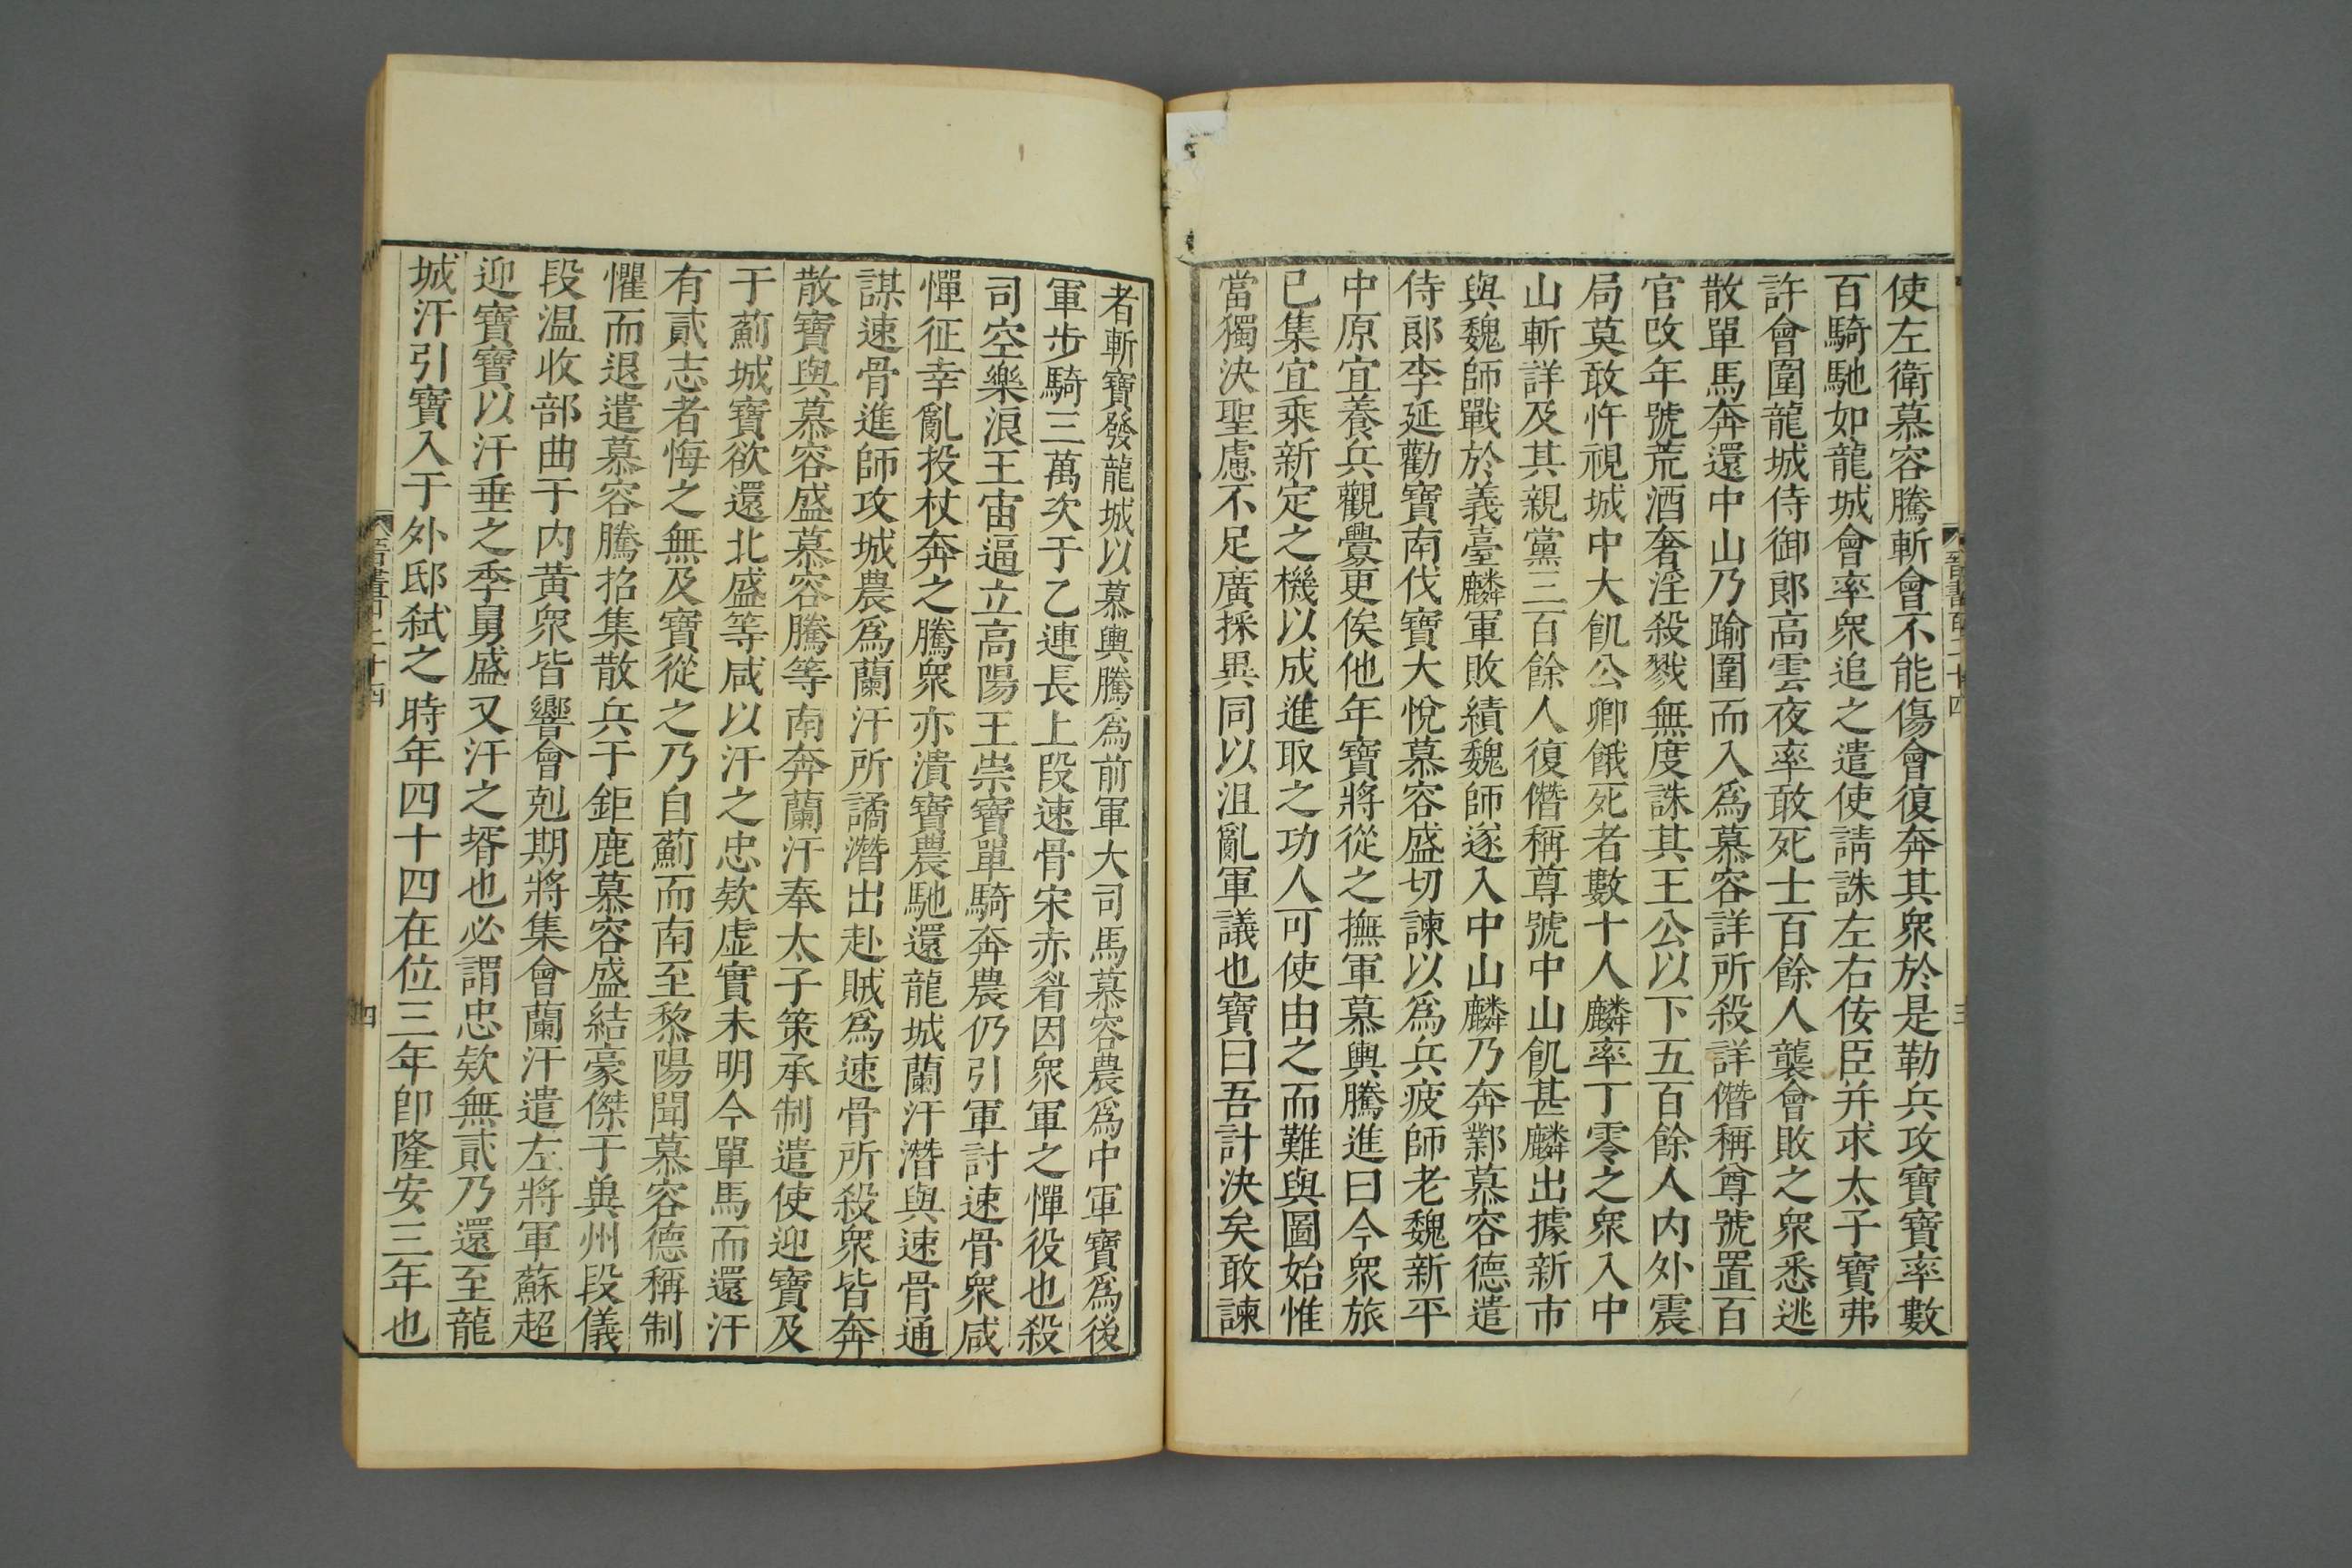 使左衛慕容騰斬會不能傷會復奔其衆於是勒兵攻寶寶率數
百騎馳如龍城會率衆追之遣使請誅左右佞臣并求太子寶弗
許會圍龍城侍御郎高雲夜率敢死士百餘人襲會敗之衆悉逃
散單馬奔還中山乃踰圍而入爲慕容詳所殺詳僭稱尊號置百
官改年號荒酒奢淫殺戮無度誅其王公以下五百餘人内外震
局莫敢忤視城中大飢公卿餓死者數十人麟率丁零之衆入中
山斬詳及其親黨三百餘人復僭稱尊號中山飢甚麟出據新市
與魏師戰於義臺麟軍敗績魏師遂入中山麟乃奔鄴慕容德遣
侍郎李延勸寶南伐寶大悅慕容盛切諫以爲兵疲師老魏新平
中原宜養兵觀釁更俟他年寶將從之撫軍慕輿騰進曰今衆旅
已集宜乘新定之機以成進取之功人可使由之而難與圖始惟
當獨決聖慮不足廣採異同以沮亂軍議也寶曰吾計決矣敢諫
者斬寶發龍城以慕輿騰爲前軍大司馬慕容農爲中軍寶爲後
軍步騎三萬次于乙連長上段速骨宋赤眉因衆軍之憚役也殺
司空樂浪王宙逼立高陽王崇寶單騎奔農仍引軍討速骨衆咸
憚征幸亂投杖奔之騰衆亦潰寶農馳還龍城蘭汗潛與速骨通
謀速骨進師攻城農爲蘭汗所譎潛出赴賊爲速骨所殺衆皆奔
散寶與慕容盛慕容騰等南奔蘭汗奉太子策承制遣使迎寶及
于薊城寶欲還北盛等咸以汗之忠欵虛實未明今單馬而還汗
有貳志者悔之無及寶從之乃自薊而南至黎陽聞慕容德稱制
懼而退遣慕容騰招集散兵于鉅鹿慕容盛結豪傑于兾州段儀
段温收部曲于内黃衆皆響會剋期將集會蘭汗遣左將軍蘇超
迎寶寶以汗垂之季舅盛又汗之壻也必謂忠欵無貳乃還至龍
城汗引寶入于外邸弑之時年四十四在位三年卽隆安三年也
晉書百二十四
三
晉書百二十四
四